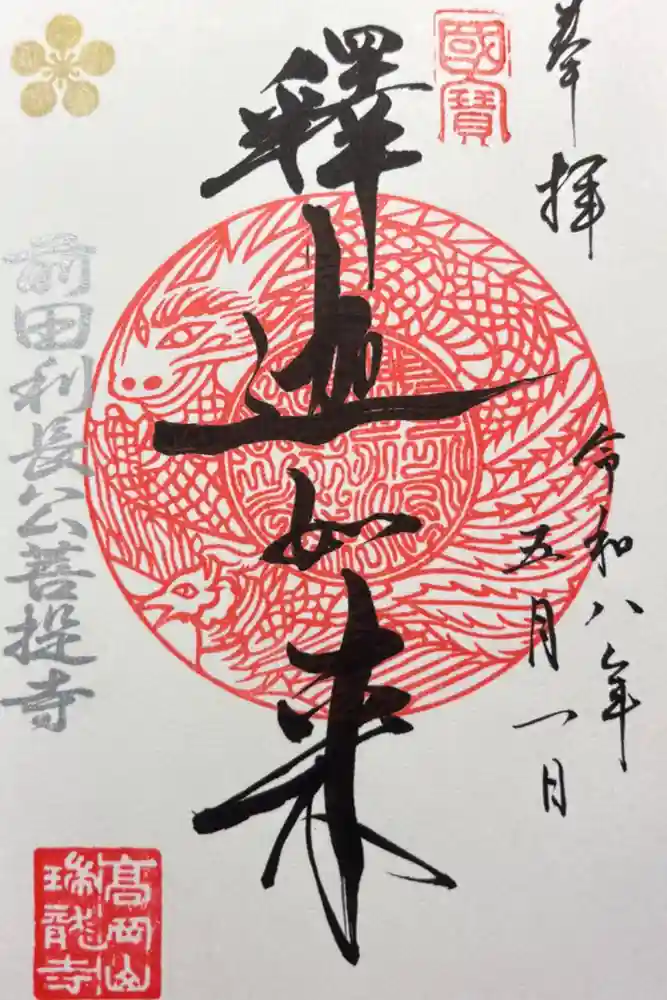 奉拝
國寶
令和八年
五月一日
釋迦如来
前田利長公菩提寺
高岡山
瑞龍寺